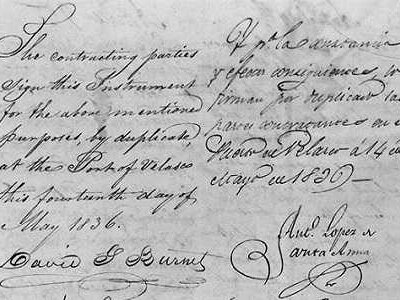 The contracting parties
sign this Instrument
for the above mentioned
purposes, by duplicate,
at the Port of Velasco
this fourteenth day of
May 1836.
David G Burnet
Y pa. la constancia
y efectos consiguientes, lo
firman por duplicado las
partes contratantes en el
Puerto de Velasco a 14 de
Mayo de 1836
Anto. Lopez de
Santa Anna